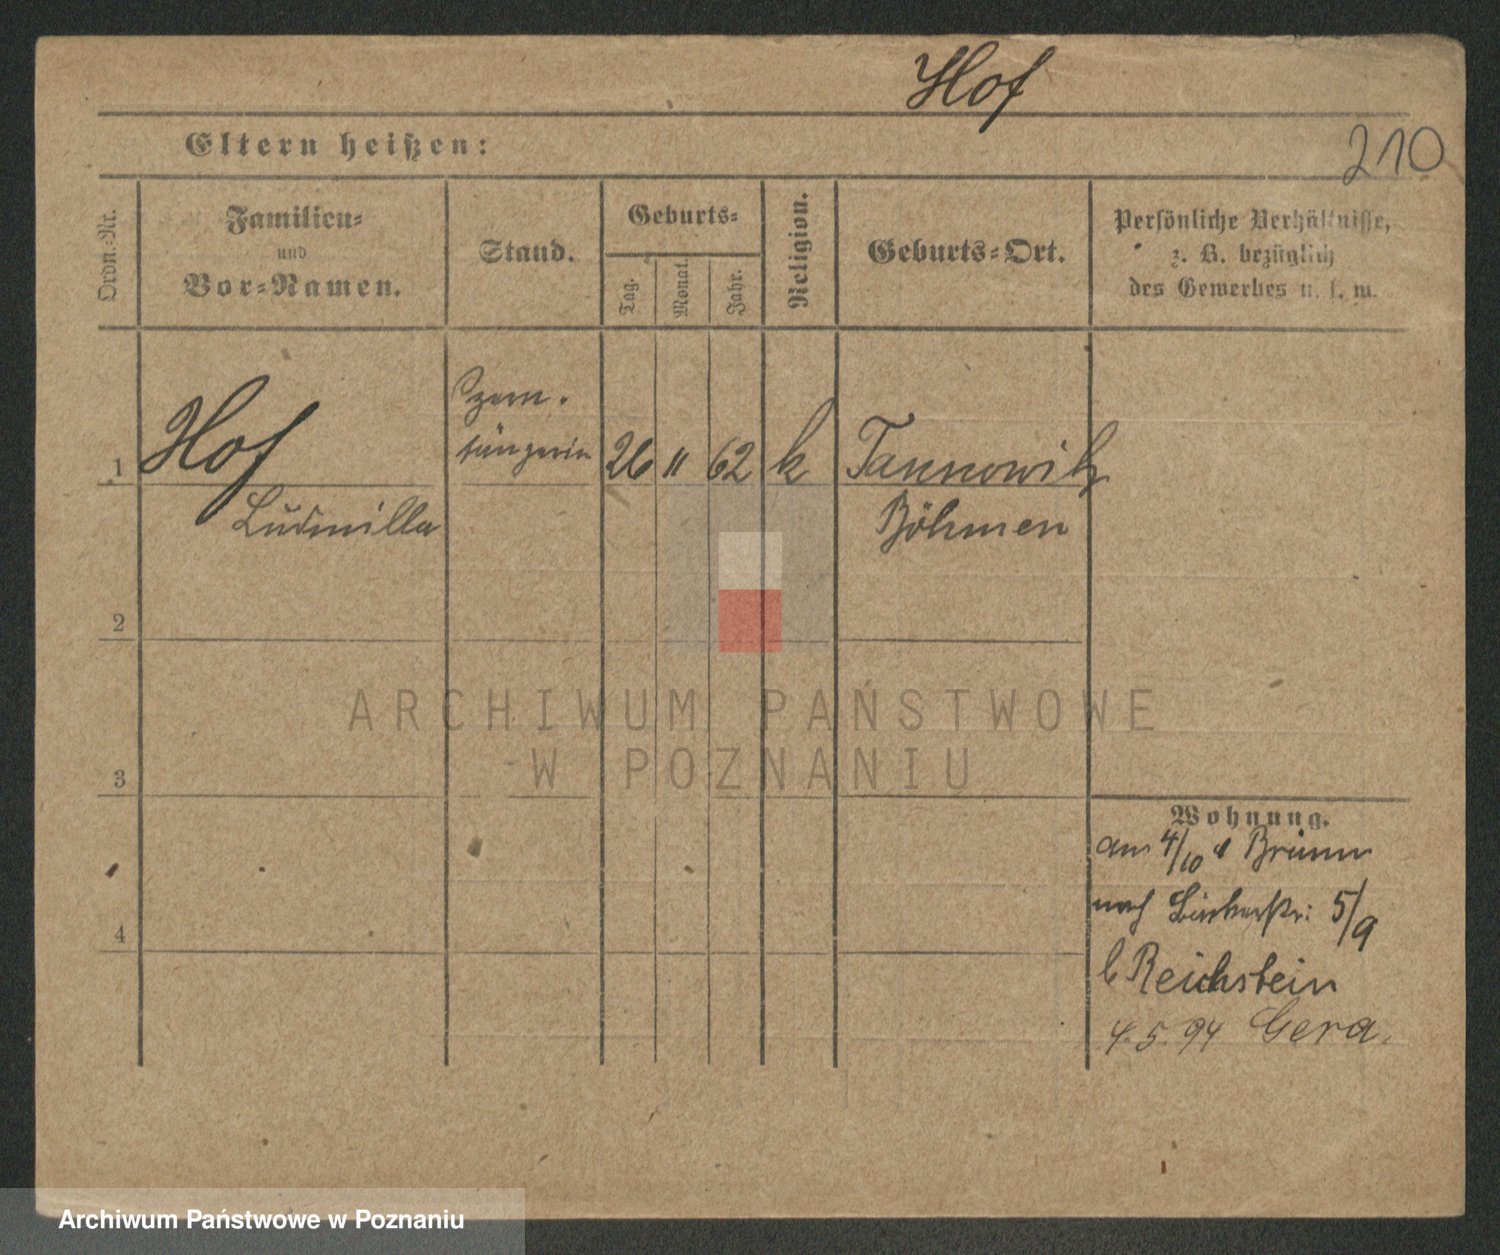 Hof
210
Eltern heißen:
Ordn.-Nr.
Familien-
und
Vor-Namen.
Stand.
Geburts-
Tag.
Monat.
Jahr.
Religion.
Geburts-Ort.
Persönliche Verhältnisse,
z. B. bezüglich
des Gewerbes u. s. w.
1 Hof
sängerin
26 11 62 k Tannowitz
Ludmilla
Böhmen
2
3
4
Wohnung.
am 4/10 Brünn
nach 5/9
b Reichstein
4. 5. 94 Gera.
ARCHIWUM PAŃSTWOWE
W POZNANIU
Archiwum Państwowe w Poznaniu